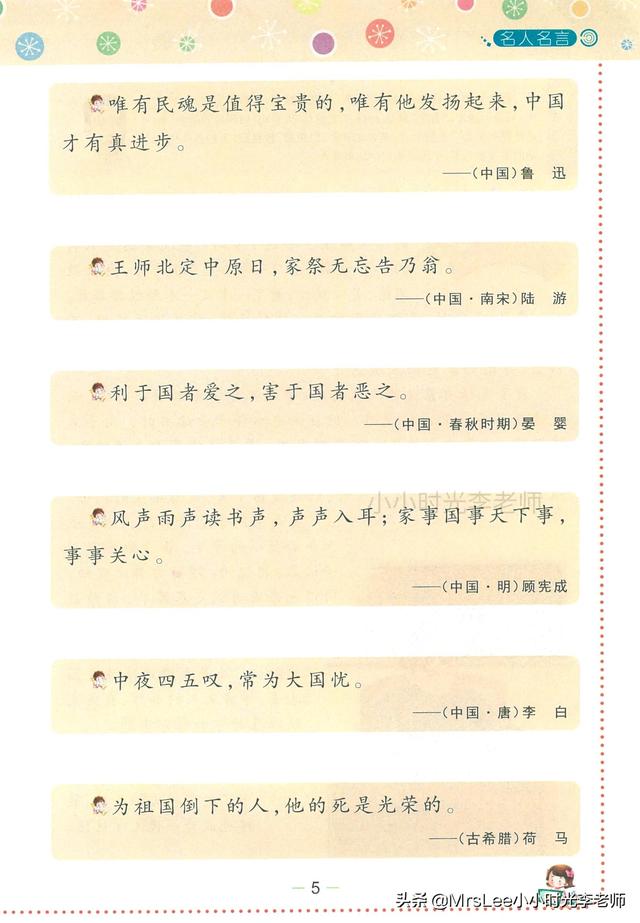 名人名言
唯有民魂是值得宝贵的，唯有他发扬起来，中国
才有真进步。
——（中国）鲁　迅
王师北定中原日，家祭无忘告乃翁。
——（中国·南宋）陆　游
利于国者爱之，害于国者恶之。
——（中国·春秋时期）晏　婴
小小时光李老师
风声雨声读书声，声声入耳；家事国事天下事，
事事关心。
——（中国·明）顾宪成
中夜四五叹，常为大国忧。
——（中国·唐）李　白
为祖国倒下的人，他的死是光荣的。
——（古希腊）荷　马
— 5 —
头条 @MrsLee小小时光李老师